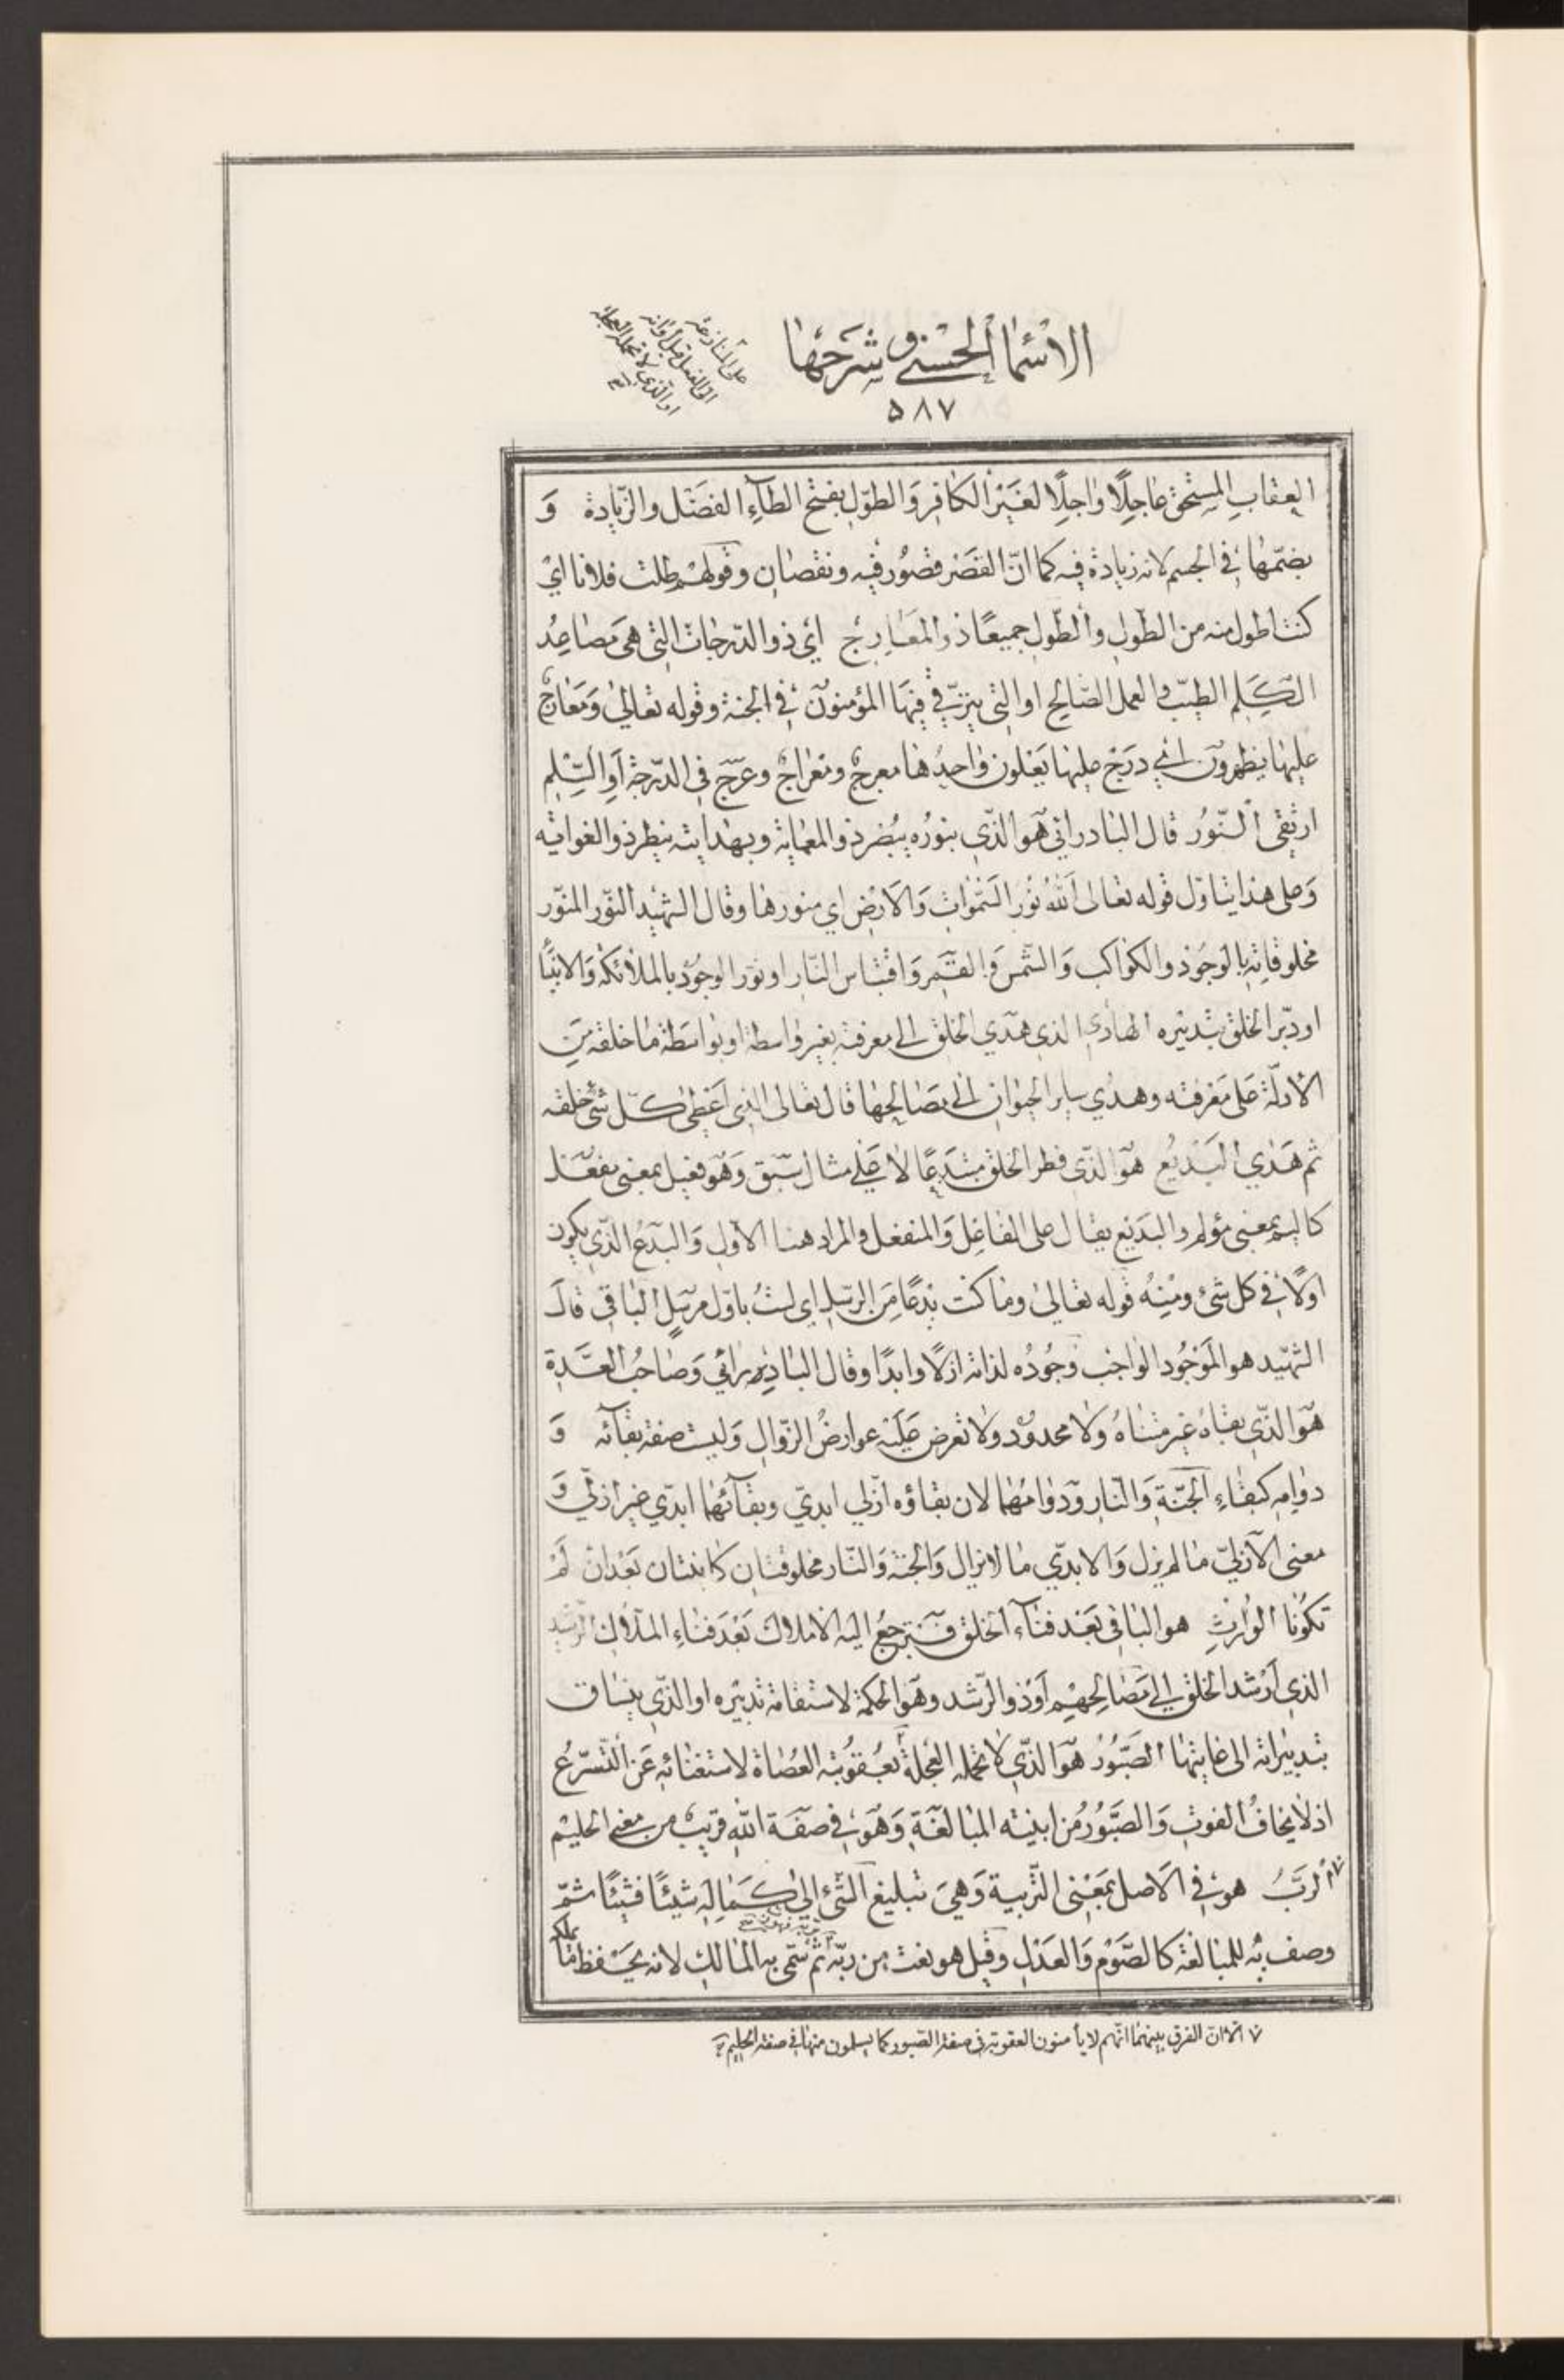 الاسماء الحسنى و شرحها
على المنازعة
الى الفعل قبل اوانه
او الذي لا تحمله العجلة
۵۸۷
العقاب المستحق عاجلا واجلا لغير الكافر والطول بفتح الطاء الفضل والزيادة و
بضمها في الجسم لانه زيادة فيه كما ان القصر قصور فيه ونقصان وقولهم طلت فلانا اي
كنت اطول منه من الطول والطول جميعا ذو المعارج اي ذو الدرجات التي هي مصاعد
الكلم الطيب والعمل الصالح او التي يترقى فيها المؤمنون في الجنة وقوله تعالى ومعارج
عليها يظهرون اي درج عليها يعلون واحدها معرج ومعراج وعرج في الدرجة او السلم
ارتقى النور قال البادرائي هو الذي بنوره يبصر ذو العماية وبهدايته ينظر ذو الغواية
وعلى هذا يتأول قوله تعالى الله نور السموات والارض اي منورها وقال الشهيد النور المنور
مخلوقاته بالوجود والكواكب والشمس والقمر واقتباس النار او نور الوجود بالملائكة والانبيا
او دبر الخلق بتدبيره الهادي الذي هدى الخلق الى معرفته بغير واسطة او بواسطة ما خلقه من
الادلة على معرفته وهدى ساير الحيوان الى مصالحها قال تعالى الذي اعطى كل شئ خلقه
ثم هدى البديع هو الذي فطر الخلق مبتدعا لا على مثال سبق وهو فعيل بمعنى مفعل
كاليم بمعنى مؤلم والبديع يقال على الفاعل والمنفعل والمراد هنا الاول والبدع الذي يكون
اولا في كل شئ ومنه قوله تعالى وما كنت بدعا من الرسل اي لست باول مرسل الباقي قال
الشهيد هو الموجود الواجب وجوده لذاته ازلا وابدا وقال البادرائي وصاحب العدة
هو الذي بقاه غير متناه ولا محدود ولا تعرض عليه عوارض الزوال وليست صفة بقائه و
دوامه كبقاء الجنة والنار ودوامهما لان بقاؤه ازلي ابدي وبقائهما ابدي غير ازلي و
معنى الازلي ما لم يزل والابدي ما لا يزال والجنة والنار مخلوقتان كائنتان بعد ان لم
تكونا الوارث هو الباقي بعد فناء الخلق فترجع اليه الاملاك بعد فناء الملاك الرشيد
الذي ارشد الخلق الى مصالحهم او ذو الرشد وهو الحكمة لاستقامة تدبيره او الذي ينساق
تدبيراته الى غايتها الصبور هو الذي لا تحمله العجلة بعقوبته العصاة لاستغنائه عن التسرع
اذ لا يخاف الفوت والصبور من ابنية المبالغة وهو في صفة الله قريب من معنى الحليم
الرب هو في الاصل بمعنى التربية وهي تبليغ الشئ الى كماله شيئا فشيئا ثم
وصف به للمبالغة كالصوم والعدل وقيل هو نعت من ربه ثم سمى به المالك لانه يحفظ ما يملكه
الا ان الفرق بينهما انهم لا يأمنون العقوبة في صفة الصبور كما يسلمون منها في صفة الحليم